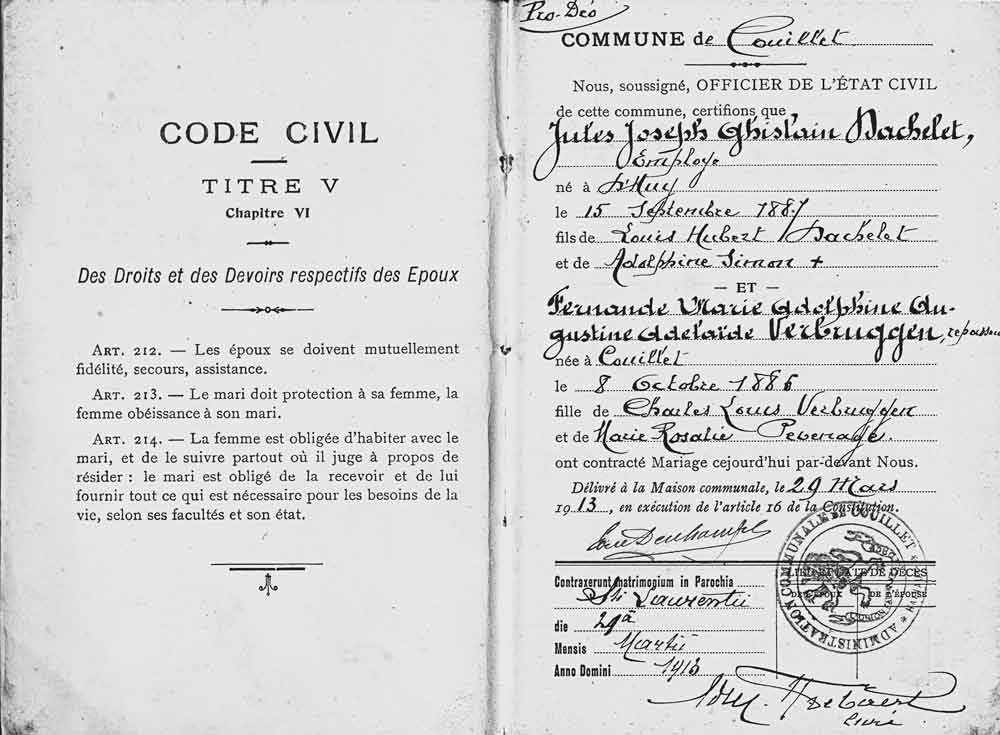 CODE CIVIL
TITRE V
Chapitre VI
Des Droits et des Devoirs respectifs des Epoux
ART. 212. — Les époux se doivent mutuellement
fidélité, secours, assistance.
ART. 213. — Le mari doit protection à sa femme, la
femme obéissance à son mari.
ART. 214. — La femme est obligée d'habiter avec le
mari, et de le suivre partout où il juge à propos de
résider : le mari est obligé de la recevoir et de lui
fournir tout ce qui est nécessaire pour les besoins de la
vie, selon ses facultés et son état.
Pro-Déo
COMMUNE de Couillet
Nous, soussigné, OFFICIER DE L'ÉTAT CIVIL
de cette commune, certifions que
Jules Joseph Ghislain Dachelet,
Employé
né à Huy
le 15 Septembre 1887
fils de Louis Hubert Dachelet
et de Adolphine Simon +
— ET —
Fernande Marie Adolphine Au-
gustine Adelaïde Verbruggen,
née à Couillet
le 8 Octobre 1886
fille de Charles Louis Verbruggen
et de Marie Rosalie Peverage.
ont contracté Mariage cejourd'hui par-devant Nous.
Délivré à la Maison communale, le 29 Mars
1913, en exécution de l'article 16 de la Constitution.
ADMINISTRATION COMMUNALE DE COUILLET
LIEU ET DATE DE DÉCÈS
DE L'ÉPOUX DE L'ÉPOUSE
Contraxerunt matrimogium in Parochia
Sti Laurentii
die 29a
Mensis Martii
Anno Domini 1913
curé